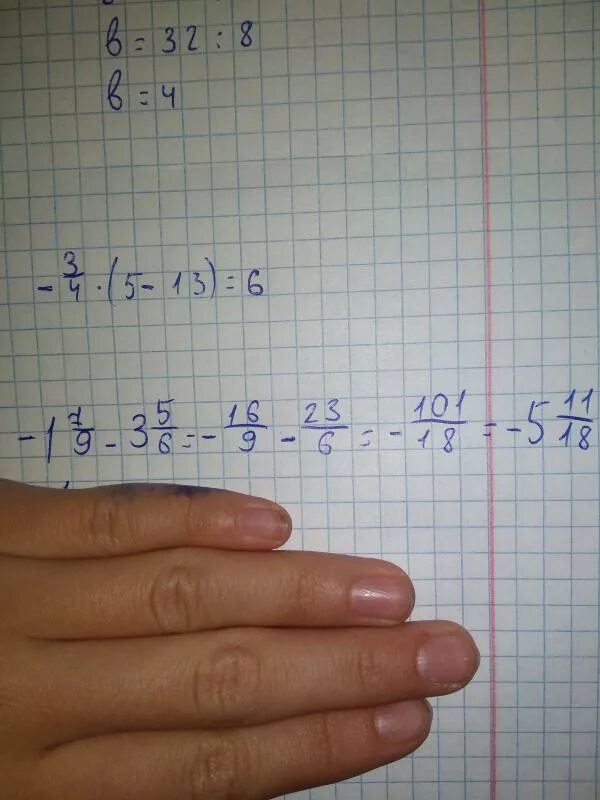 в = 32 : 8
в = 4
- 3/4 · (5 - 13) = 6
-1 7/9 - 3 5/6 = - 16/9 - 23/6 = - 101/18 = -5 11/18